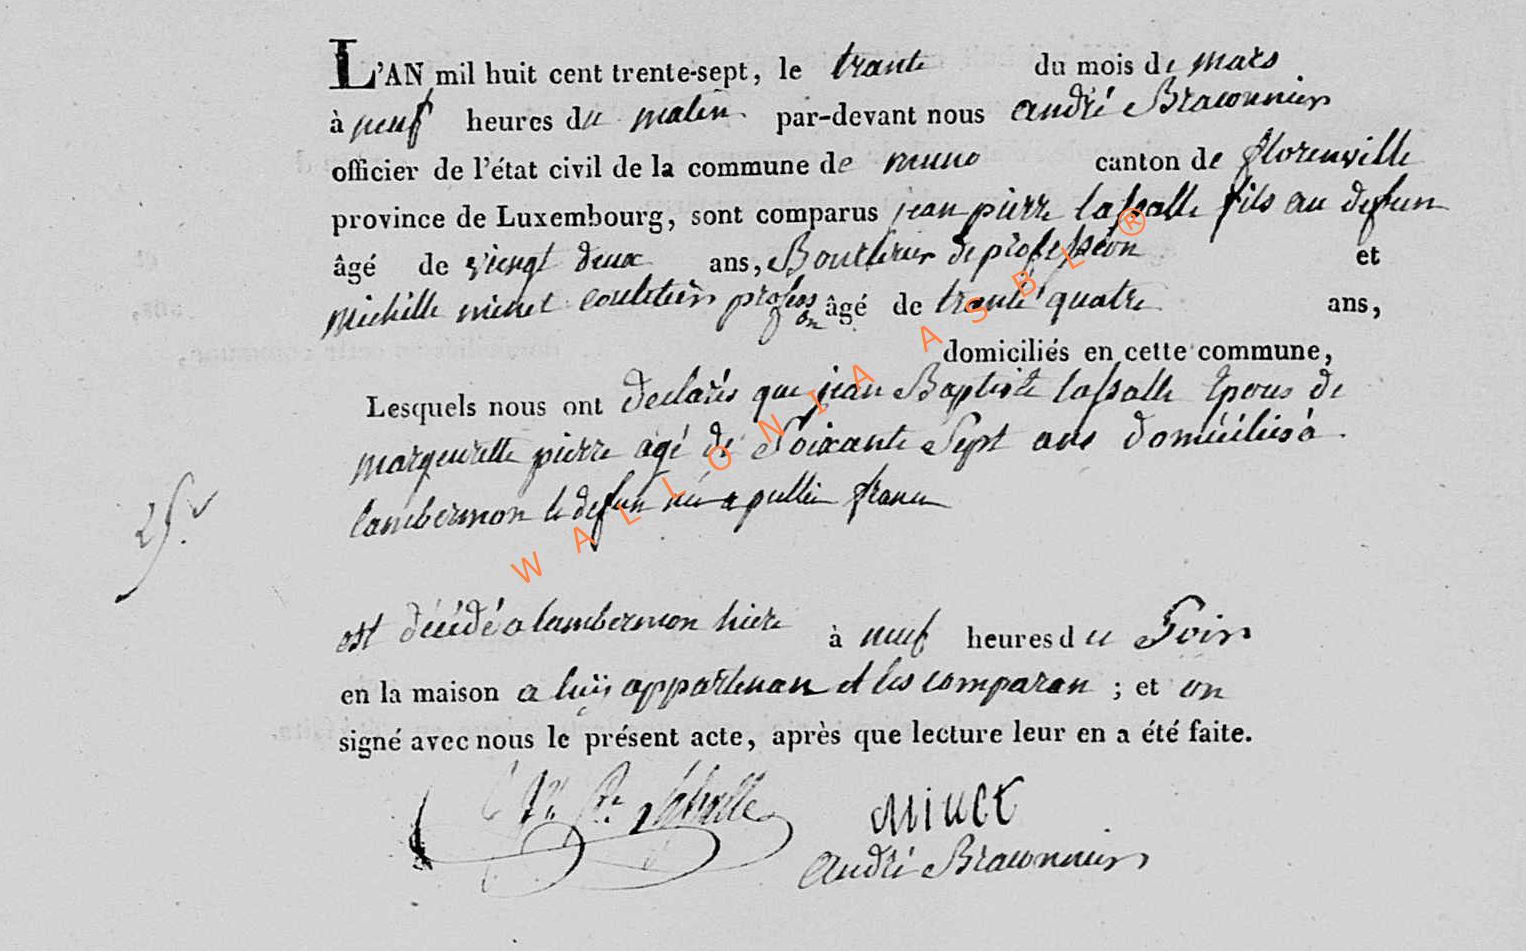 L'AN mil huit cent trente-sept, le trante du mois de mars
à neuf heures du matin par-devant nous andré Braconnier
officier de l'état civil de la commune de muno canton de florenville
province de Luxembourg, sont comparus jean pierre lassalle fils au defun
âgé de viengt deux ans, de professéon et
michille minet profession âgé de trante quatre ans,
domiciliés en cette commune,
Lesquels nous ont declarés que jean Baptiste lassalle Epous de
marguerette pierre agé de Soixante Sept ans domiciliés à
lambermon le defun né a pullin france
25.
est décédé a lambermon hiere à neuf heures du Soir
en la maison a luÿ appartenan et les comparan ; et on
signé avec nous le présent acte, après que lecture leur en a été faite.
Jn Pre Lassalle
Minet
andré Braconnier
WALLONIA ASBL ®